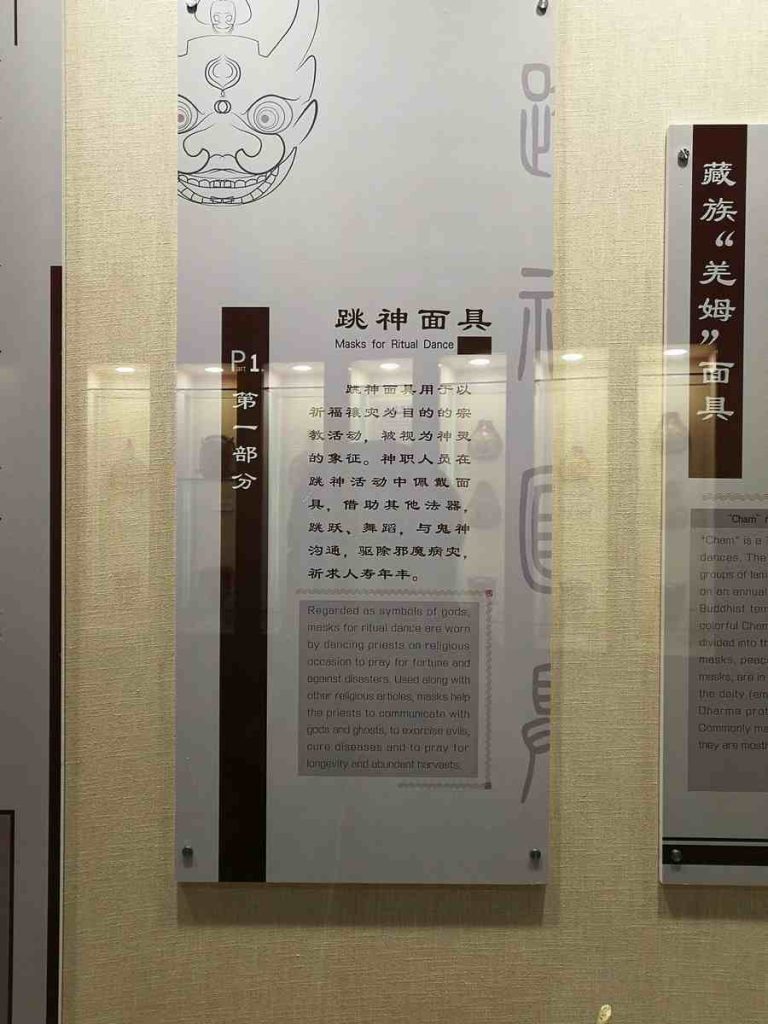 跳神面具
Masks for Ritual Dance
Part 1.
第一部分
跳神面具用于以
祈福禳灾为目的的宗
教活动，被视为神灵
的象征。神职人员在
跳神活动中佩戴面
具，借助其他法器，
跳跃、舞蹈，与鬼神
沟通，驱除邪魔病灾，
祈求人寿年丰。
Regarded as symbols of gods,
masks for ritual dance are worn
by dancing priests on religious
occasion to pray for fortune and
against disasters. Used along with
other religious articles, masks help
the priests to communicate with
gods and ghosts, to exorcise evils,
cure diseases and to pray for
longevity and abundant harvests.
跳神面具
藏族“羌姆”面具
"Cham"
"Cham" is a
dances. The
groups of
on an annual
Buddhist
colorful Cham
divided into
masks, 
masks, are in
the deity
Dharma
Commonly
they are